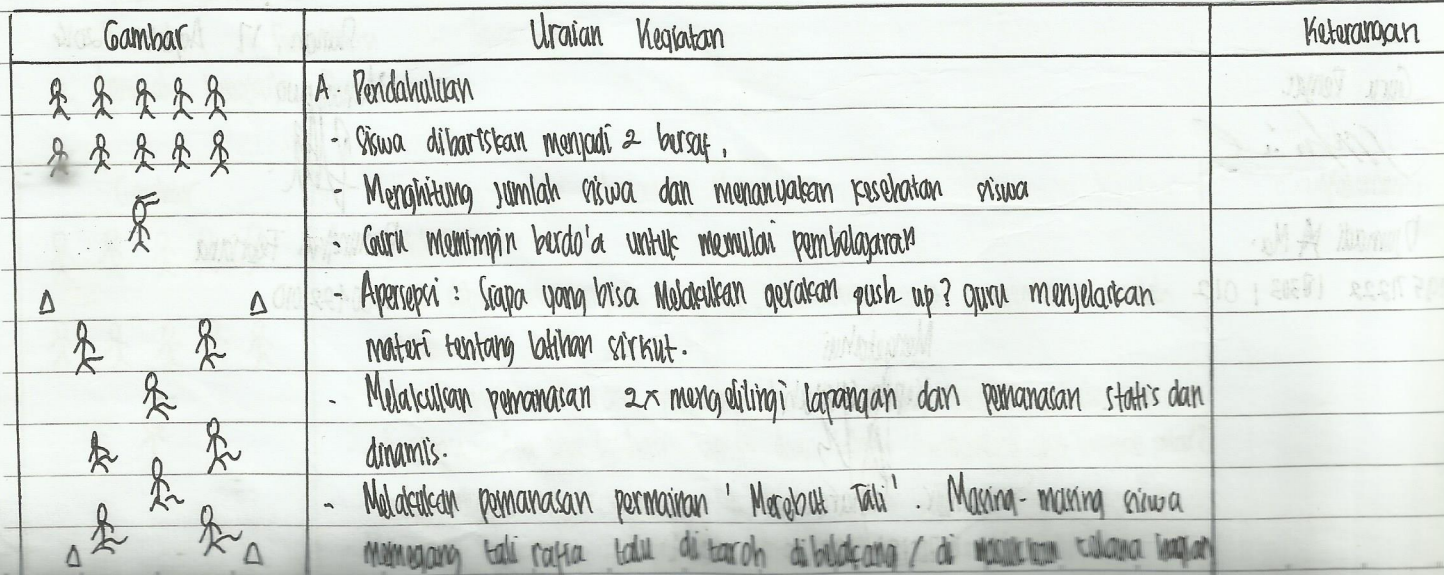 Gambar Uraian Kegiatan Keterangan
A. Pendahuluan
- Siswa dibariskan menjadi 2 bersaf.
- Menghitung jumlah siswa dan menanyakan kesehatan siswa
- Guru memimpin berdo'a untuk memulai pembelajaran
Apersepsi : Siapa yang bisa Melakukan gerakan push up? guru menjelaskan
materi tentang latihan sirkut.
- Melakukan pemanasan 2x mengelilingi lapangan dan pemanasan statis dan
dinamis.
- Melakukan pemanasan permainan ' Merebut Tali '. Masing-masing siswa
memegang tali rafia lalu di taroh dibelakang / di celana bagian